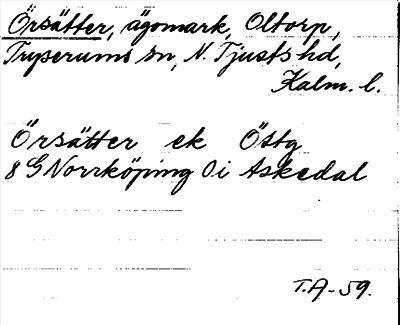 Örsätter, ägomark, Oltorp,
Tryserums sn, N. Tjusts hd,
Kalm. l.
Örsätter ek Östg
8 G Norrköping Oi Askedal
T.A-59.